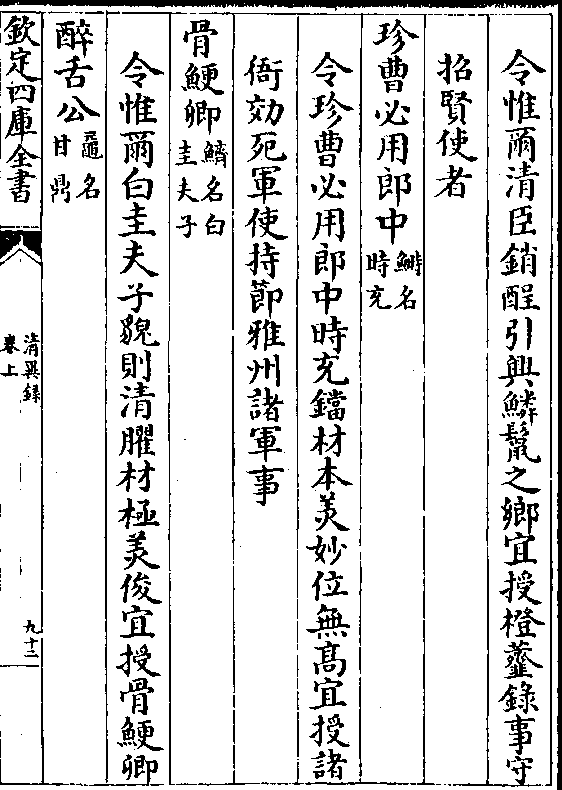 令惟爾清臣銷酲引興鱗鬛之鄉宜授橙虀錄事守
招賢使者
珍曹必用郎中鰣名時充
令珍曹必用郎中時充鐺材本美妙位無髙宜授諸
衙効死軍使持節雅州諸軍事
骨鯁卿鱭名白圭夫子
令惟爾白圭夫子貌則清臞材極美俊宜授骨鯁卿
醉舌公黿名甘鼎
欽定四庫全書
清異録
卷上
九十二